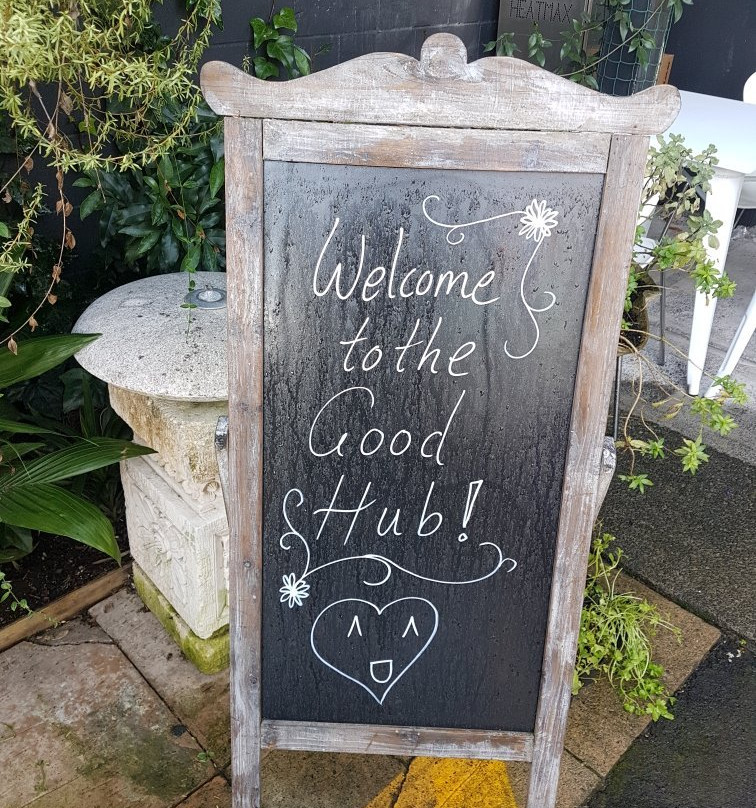 HEATMAX
Welcome
to the
Good
Hub!